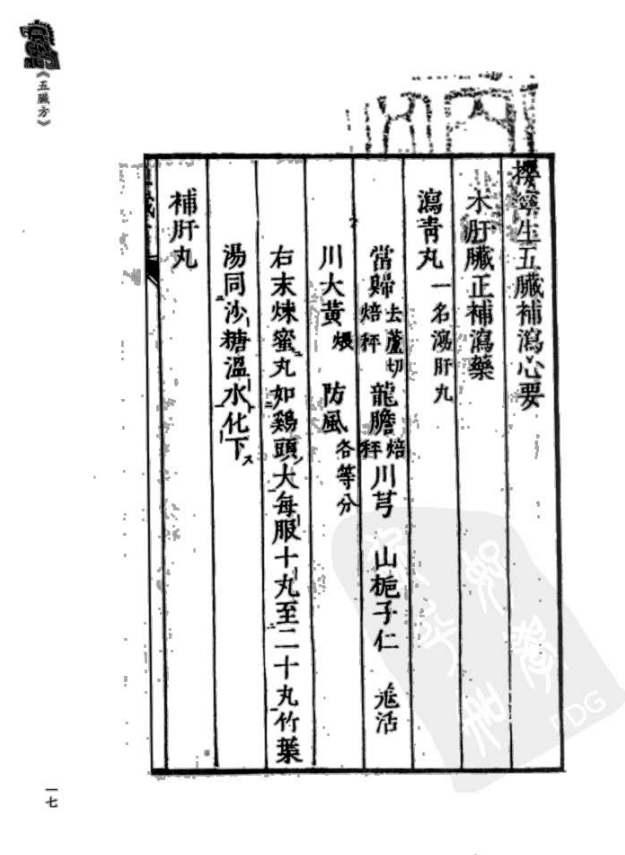 攖寧生五臟補瀉心要
木肝臟正補瀉藥
瀉青丸 一名瀉肝丸
當歸 去蘆切焙秤 龍膽 焙秤 川芎 山梔子仁 羗活
川大黃 煨 防風 各等分
右末煉蜜丸如鷄頭大每服十丸至二十丸竹葉
湯同沙糖溫水化下
補肝丸
《五臟方》
一七